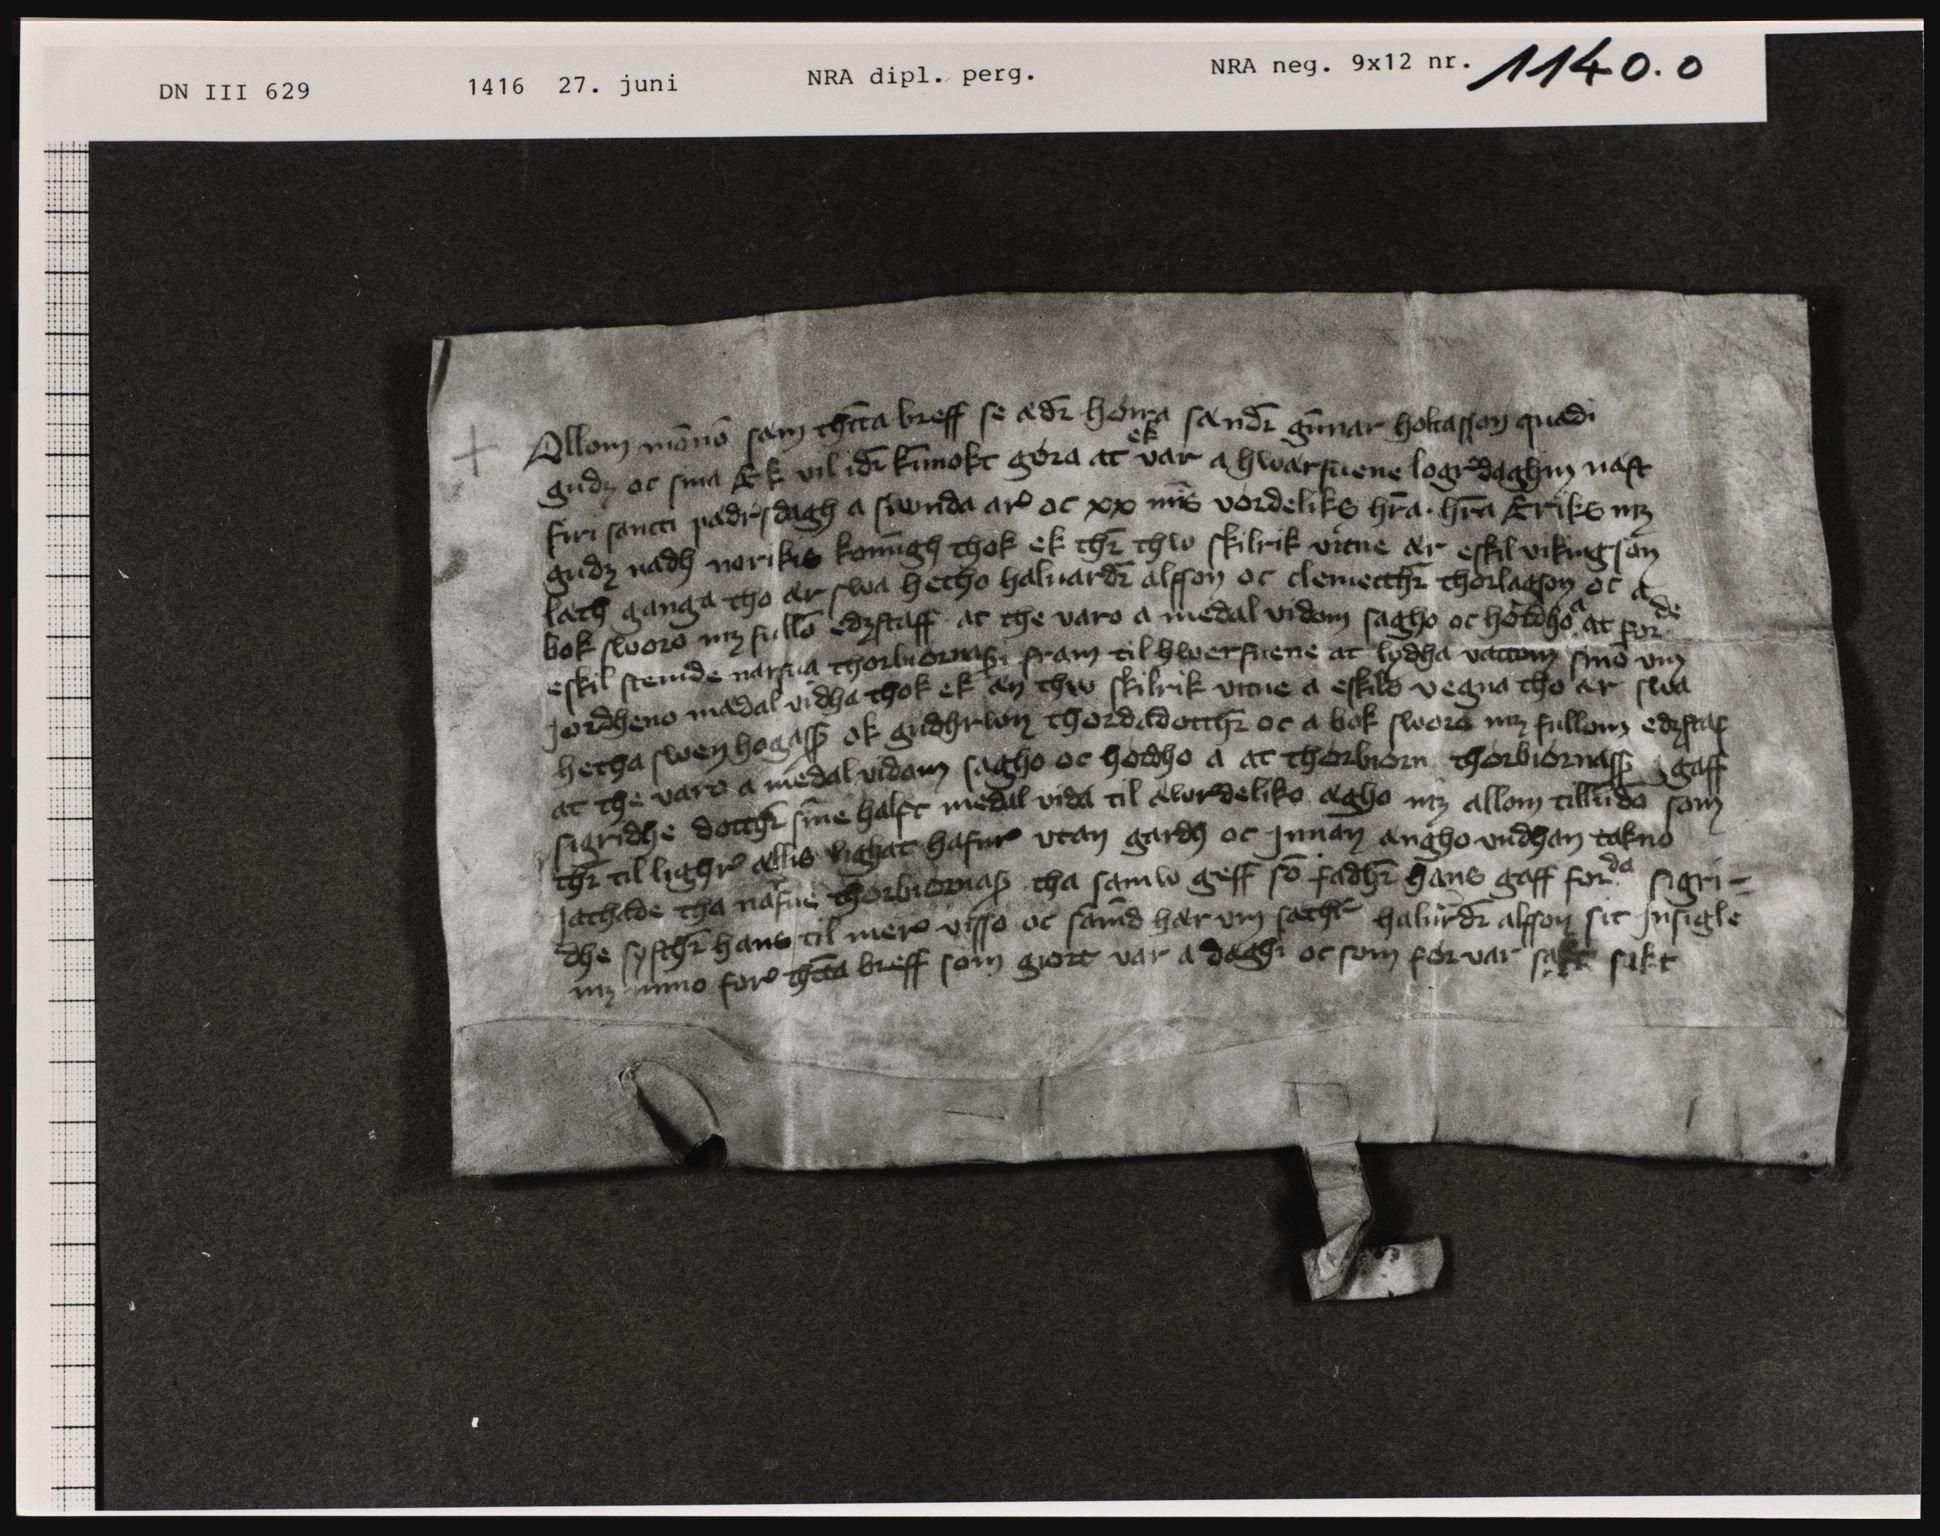 DN III 629 1416 27. juni NRA dipl. perg. NRA neg. 9x12 nr. 1140.0
Allom mōnō sæm thetta breff se ædr høyra sændr gūnar holtasson quædi
gudz oc sina Æk vil idr kunokt gøra at ek var a hwarfuene logrdaghin næst
firi sancti pædrsdagh a siwnda are oc xx mīs vordeliks hra. hra Æriks mz
gudz nadh noriks konungh thok ek thr thw skilrik vitne ær eskil vikingson
læth ganga tho ær swa hetho haluardr alfson oc clemetthr thorlagson oc a
bok sworo mz fullō edzstaff at the varo a medal vidom sagho oc hørdho a at forde
eskil stemde narfua thorbiornass fram til hwerfuene at lydha vattom sinō vm
jordheno mædal vidha thok ek æn thw skilrik vitne a eskils vegna tho ær swa
hetha swen hogass ok gudhrwn thordadotthr oc a bok sworo mz fullom edzstaf
at the varo a medal vidom sagho oc hørdho a at thorbiorn thorbiornass gaff
sigridhe dotthr sine halft medal vida til æwrdeliks ægho mz allom tillūdō som
thr til lighr ællis lighat hafur vtan gardh oc jnnan ængho vndhan takno
jathade tha narfue thorbiornass tha samw geff sō fadhr hans gaff forda sigri-
dhe systhr hans til mere visso oc sannid hær vm sæthr haluardr alfson sit jnsigle
mz mino fore thetta breff som giort var a daghi oc som før var sakt sakt